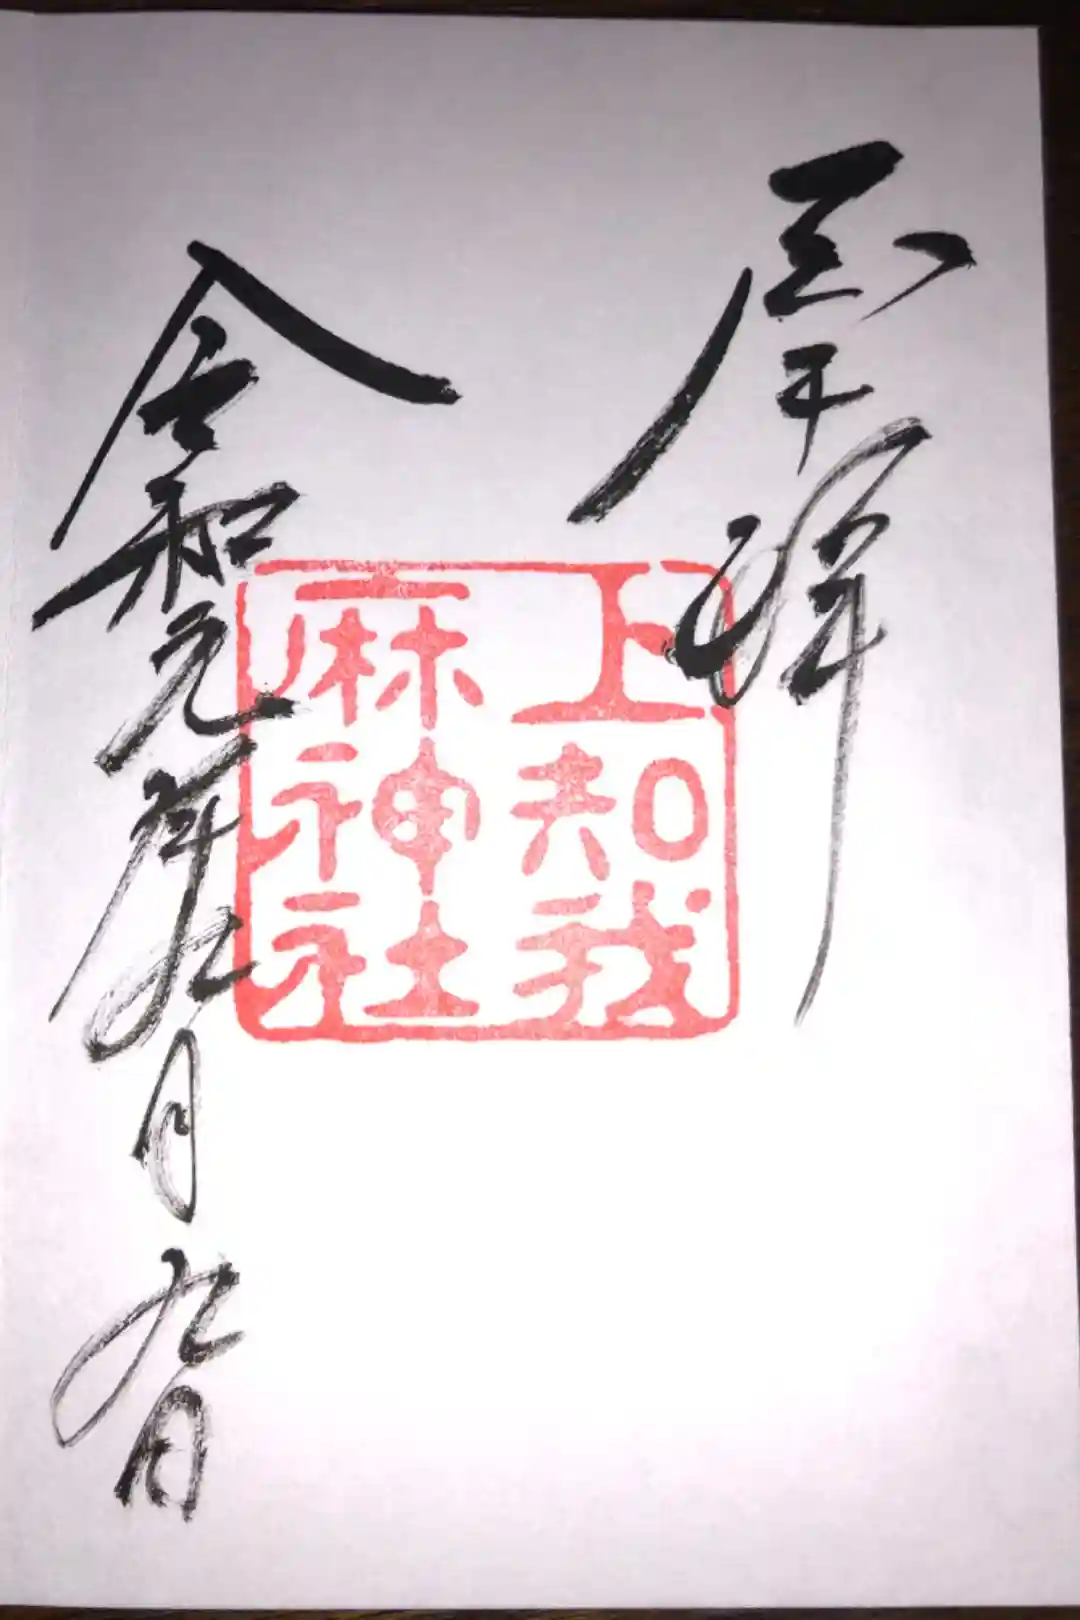 奉拝
上知我
麻神社
令和元年九月九日